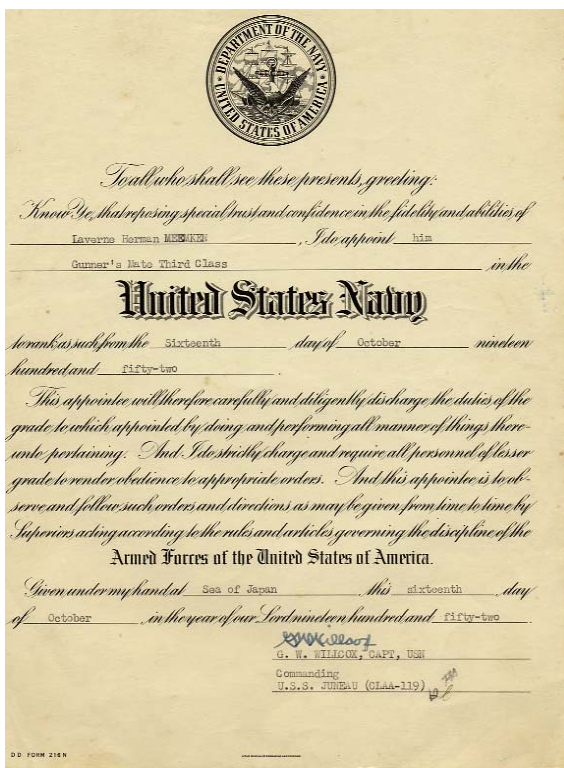 DEPARTMENT OF THE NAVY
UNITED STATES OF AMERICA
To all who shall see these presents, greeting:
Know Ye, that reposing special trust and confidence in the fidelity and abilities of
Laverne Herman MEEMKEN, I do appoint him
Gunner's Mate Third Class in the
United States Navy
to rank as such from the Sixteenth day of October nineteen
hundred and fifty-two.
This appointee will therefore carefully and diligently discharge the duties of the
grade to which appointed by doing and performing all manner of things there-
unto pertaining. And I do strictly charge and require all personnel of lesser
grade to render obedience to appropriate orders. And this appointee is to ob-
serve and follow such orders and directions as may be given from time to time by
Superiors acting according to the rules and articles governing the discipline of the
Armed Forces of the United States of America.
Given under my hand at Sea of Japan this sixteenth day
of October in the year of our Lord nineteen hundred and fifty-two.
G. W. WILLCOX, CAPT, USN
Commanding
U.S.S. JUNEAU (CLAA-119)
DD FORM 216N